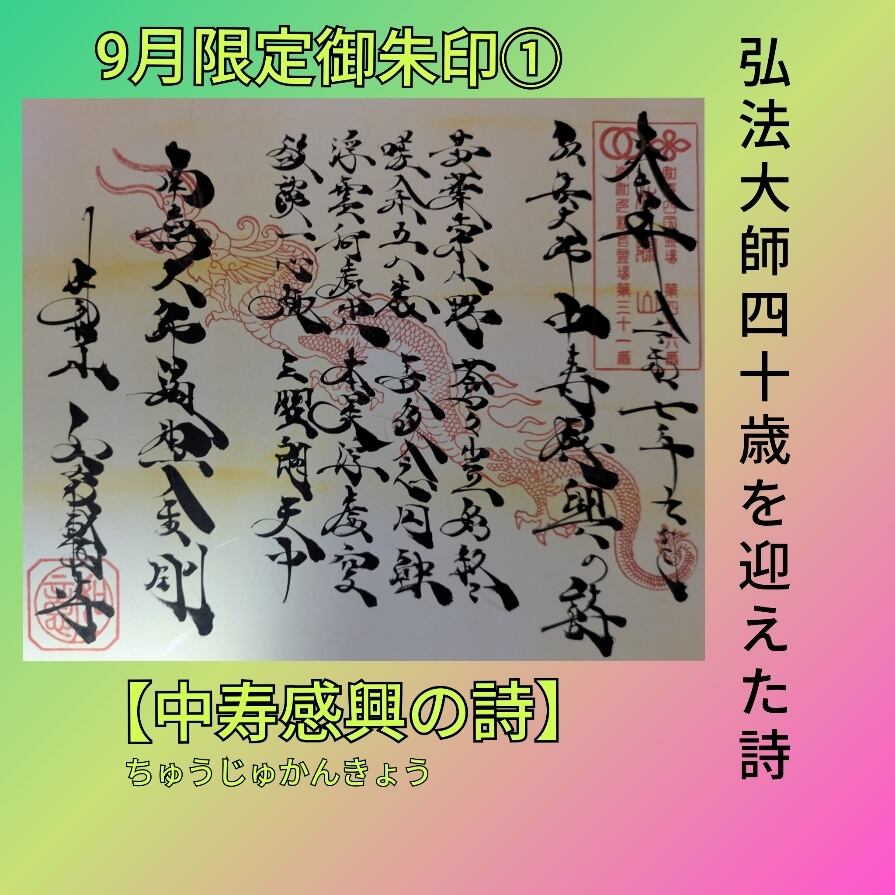 9月限定御朱印①
弘法大師四十歳を迎えた詩
弘法大師中寿感興の詩
黄葉索山野 蒼々豈始終
嗟余五八歳 長夜念円融
浮雲何處出 本是浄虚空
欲談一心趣 三曜朗天中
南無大師遍照金剛
【中寿感興の詩】
ちゅうじゅかんきょう